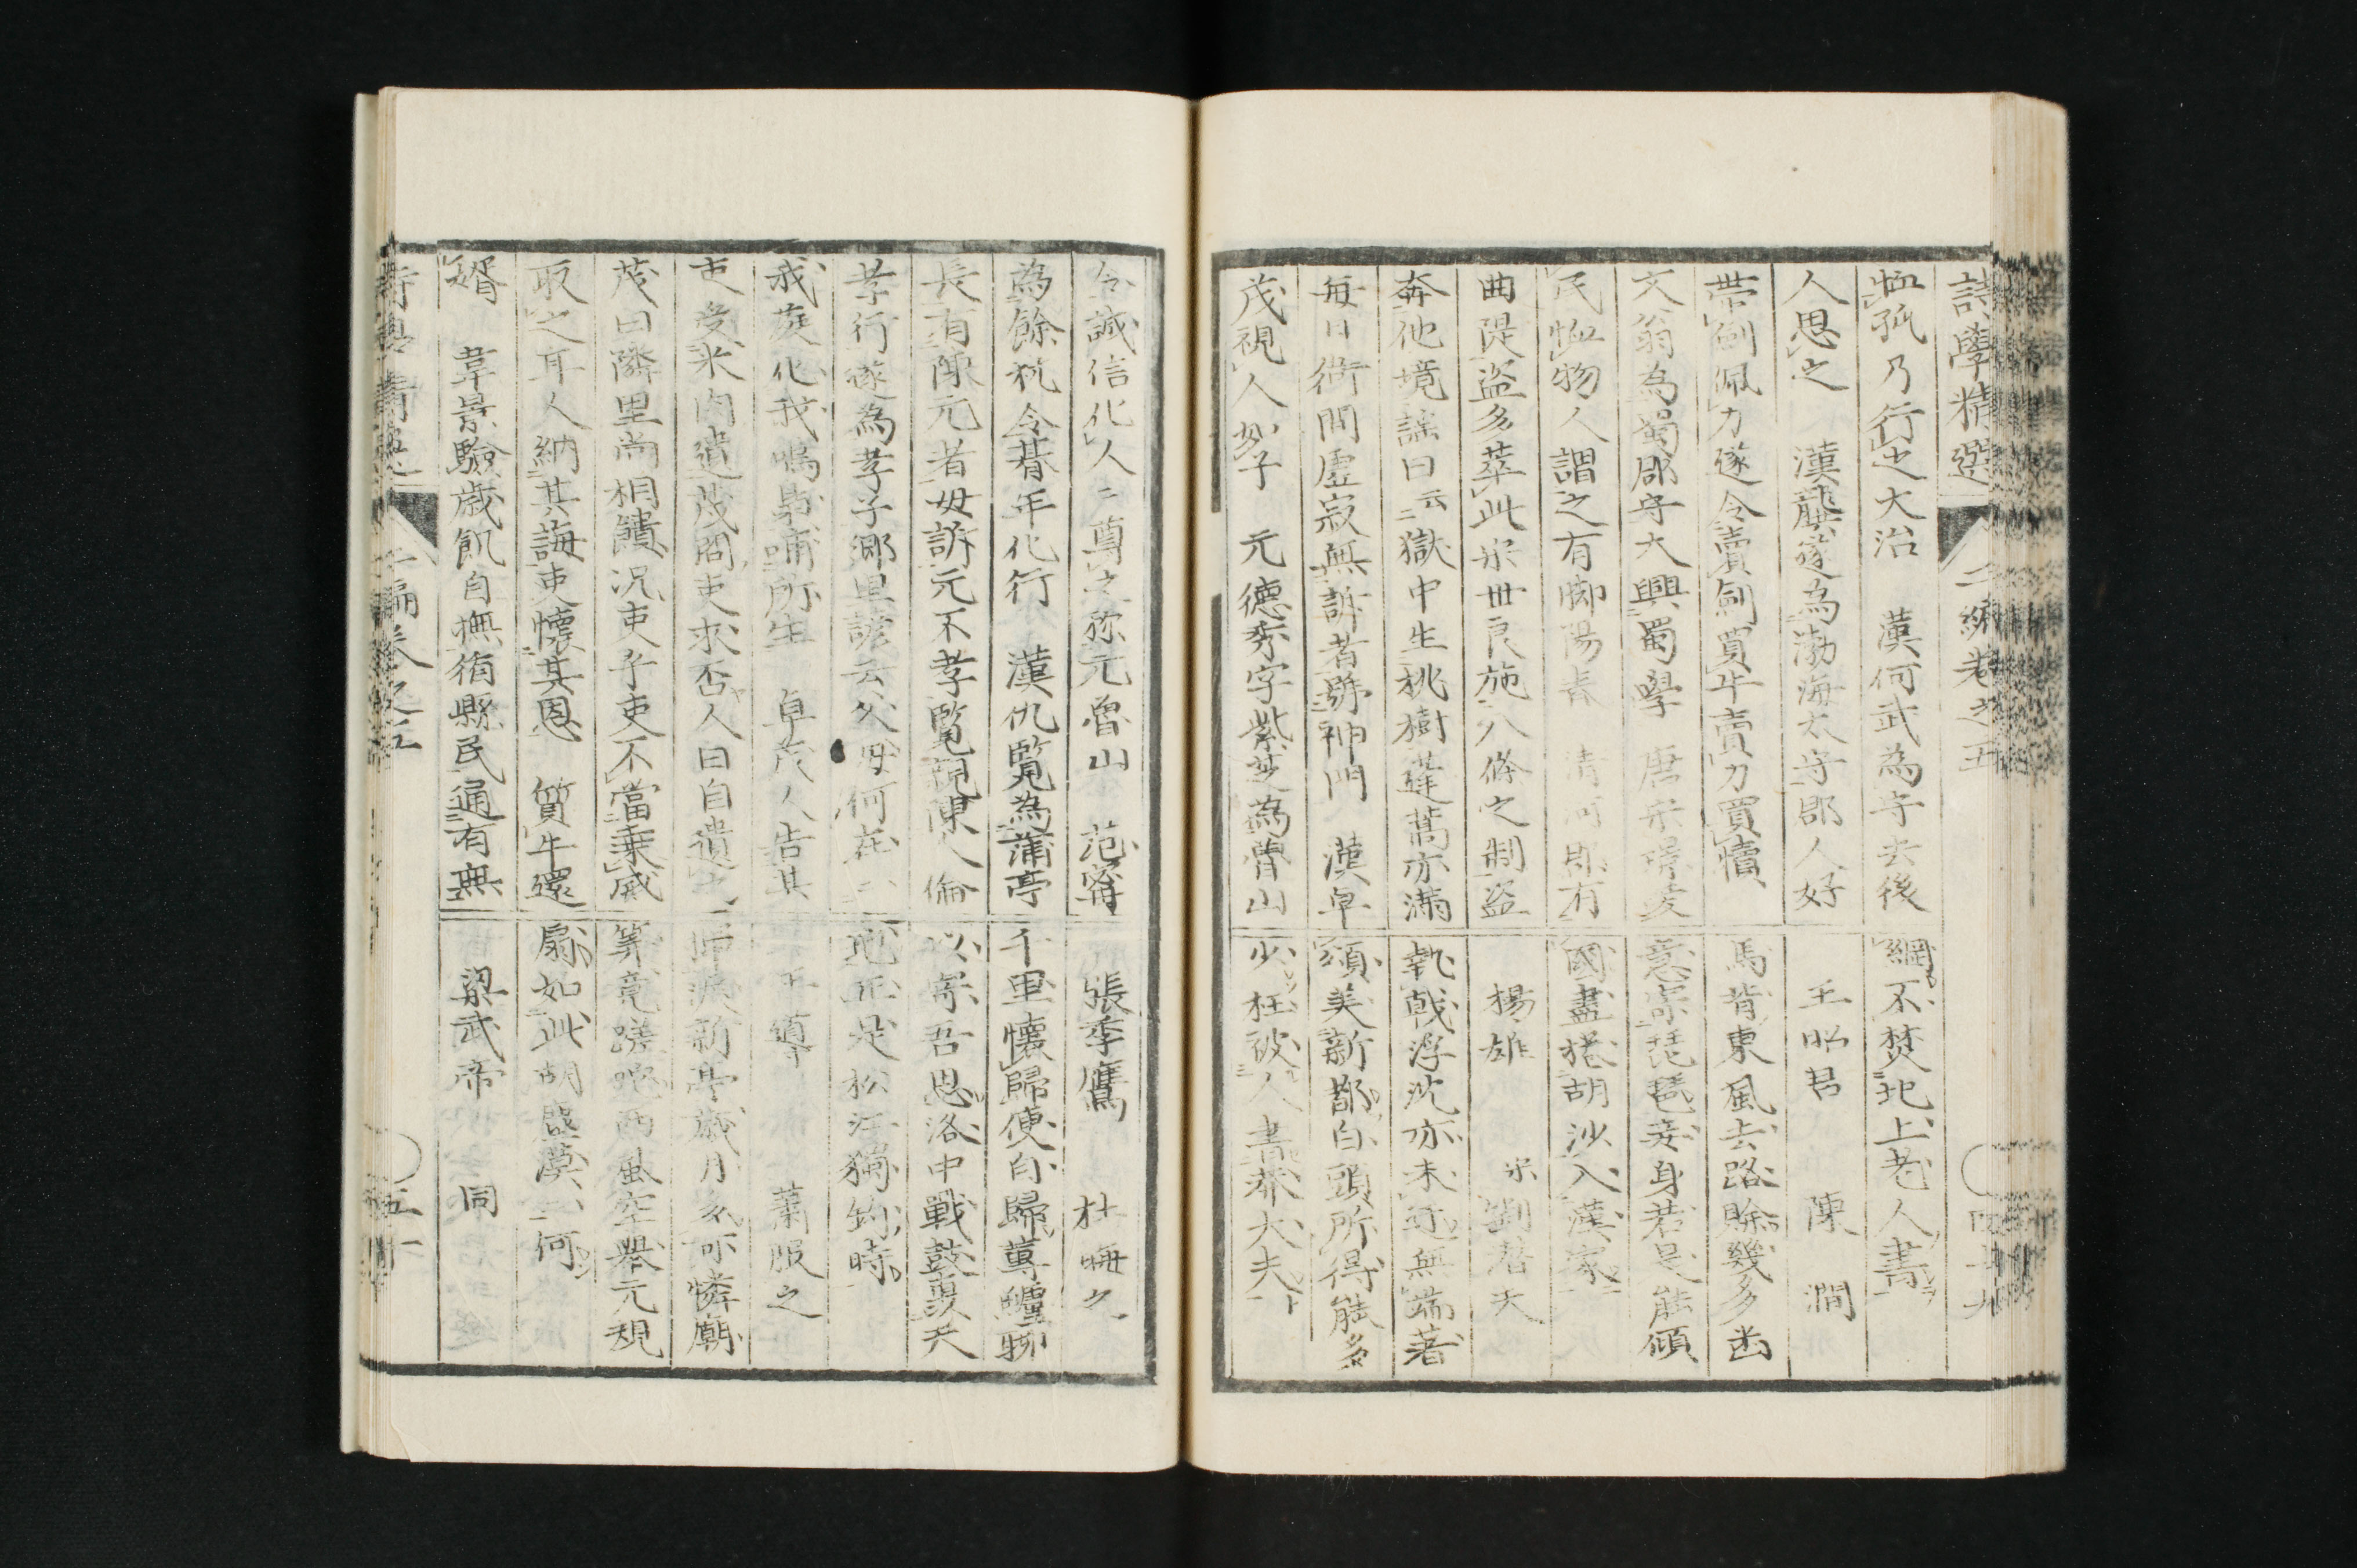 詩學精選 二編卷之五 四十九
恤孤乃行之大治 漢何武為守去後
人思之 漢龔遂為渤海太守郡人好
帶劍佩刀遂令賣劍買牛賣刀買犢
文翁為蜀郡守大興蜀學 唐宋璟愛
民恤物人謂之有脚陽春 清河郡有
曲隄盜多萃此宋世良施八條之制盜
奔他境謠曰云云獄中生桃樹蓬蒿亦滿
每日衙門虛寂無訴者號神門 漢卓
茂視人如子 元德秀字紫芝為魯山
網不焚圯上老人書
王昭君 陳 潤
馬背東風去路賒幾多幽
意寄琵琶妾身若是能傾
國盡捲胡沙入漢家
楊雄 宋劉君天
執戟浮沈亦未迂無端著
頌美新都白頭所得能多
少枉被人書莽大夫
令誠信化人人尊之称元魯山 范甯
為餘杭令朞年化行 漢仇覽為蒲亭
長有陳元者母訴元不孝覽親陳人倫
孝行遂為孝子鄉里諺云父母何在在
我庭化我鳴梟哺所生 卓茂人告其
吏受米肉遺茂問吏求否人曰自遺之
茂曰隣里尚相饋况吏乎吏不當乗威
取之耳人納其誨吏懷其恩 質牛還
婿 韋景駿歳飢自撫循縣民通有無
張季鷹 杜 晦之
千里懷歸便自歸蓴鱸聊
以寄吾思洛中戰鼓轟天
地正是松江獨釣時
王導 葉服之
一師淚新亭歲月多可憐廟
筭竟蹉跎西風空舉元規
扇如此胡塵漠漠何
梁武帝 同
詩學精選 二編卷之五 五十